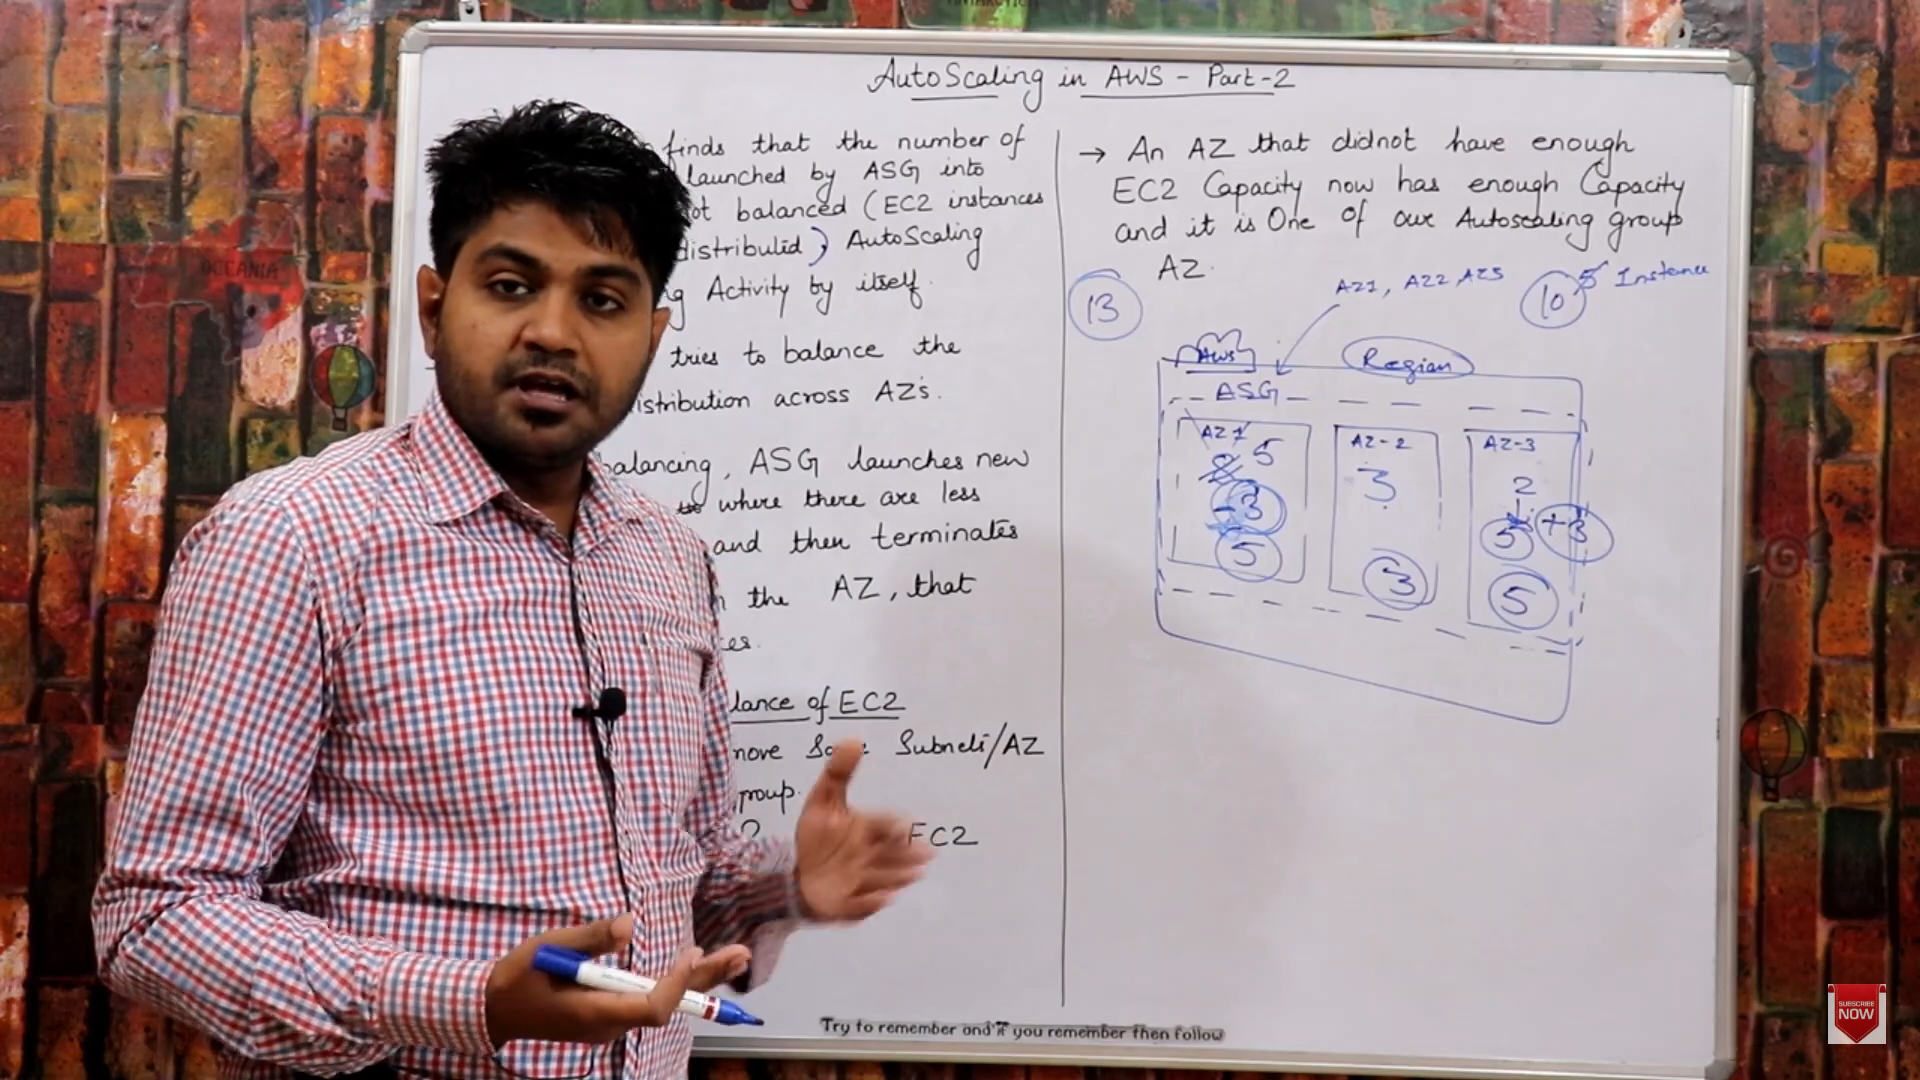 AutoScaling in AWS - Part-2
finds that the number of
launched by ASG into
ot balanced (EC2 instances
distributed) AutoScaling
g Activity by itself.
tries to balance the
istribution across AZ's.
balancing, ASG launches new
where there are less
and then terminates
the AZ, that
ces.
lance of EC2
move Subnets/AZ
group.
EC2
→ An AZ that didnot have enough
EC2 Capacity now has enough Capacity
and it is One of our Autoscaling group
AZ.
13
AZ1, AZ2, AZ3
10 5 Instance
AWS
Region
ASG
AZ 1
AZ-2
AZ-3
5
3
2
-3
5 +3
5
3
5
Try to remember and if you remember then follow
OCEANIA
SUBSCRIBE
NOW